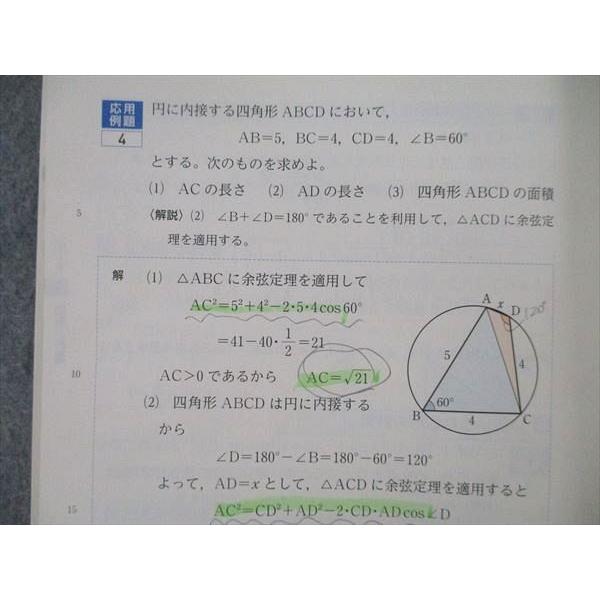 応用
例題
4
円に内接する四角形 ABCD において，
AB=5，BC=4，CD=4，∠B=60°
とする。次のものを求めよ。
(1) AC の長さ (2) AD の長さ (3) 四角形 ABCD の面積
5
〈解説〉(2) ∠B+∠D=180° であることを利用して，△ACD に余弦定
理を適用する。
解 (1) △ABC に余弦定理を適用して
AC²=5²+4²−2・5・4cos60°
=41−40・1/2=21
10
AC>0 であるから AC=√21
(2) 四角形 ABCD は円に内接する
から
∠D=180°−∠B=180°−60°=120°
よって，AD=x として，△ACD に余弦定理を適用すると
15
AC²=CD²+AD²−2・CD・AD cos∠D
A
x
D
120°
5
4
60°
B
4
C